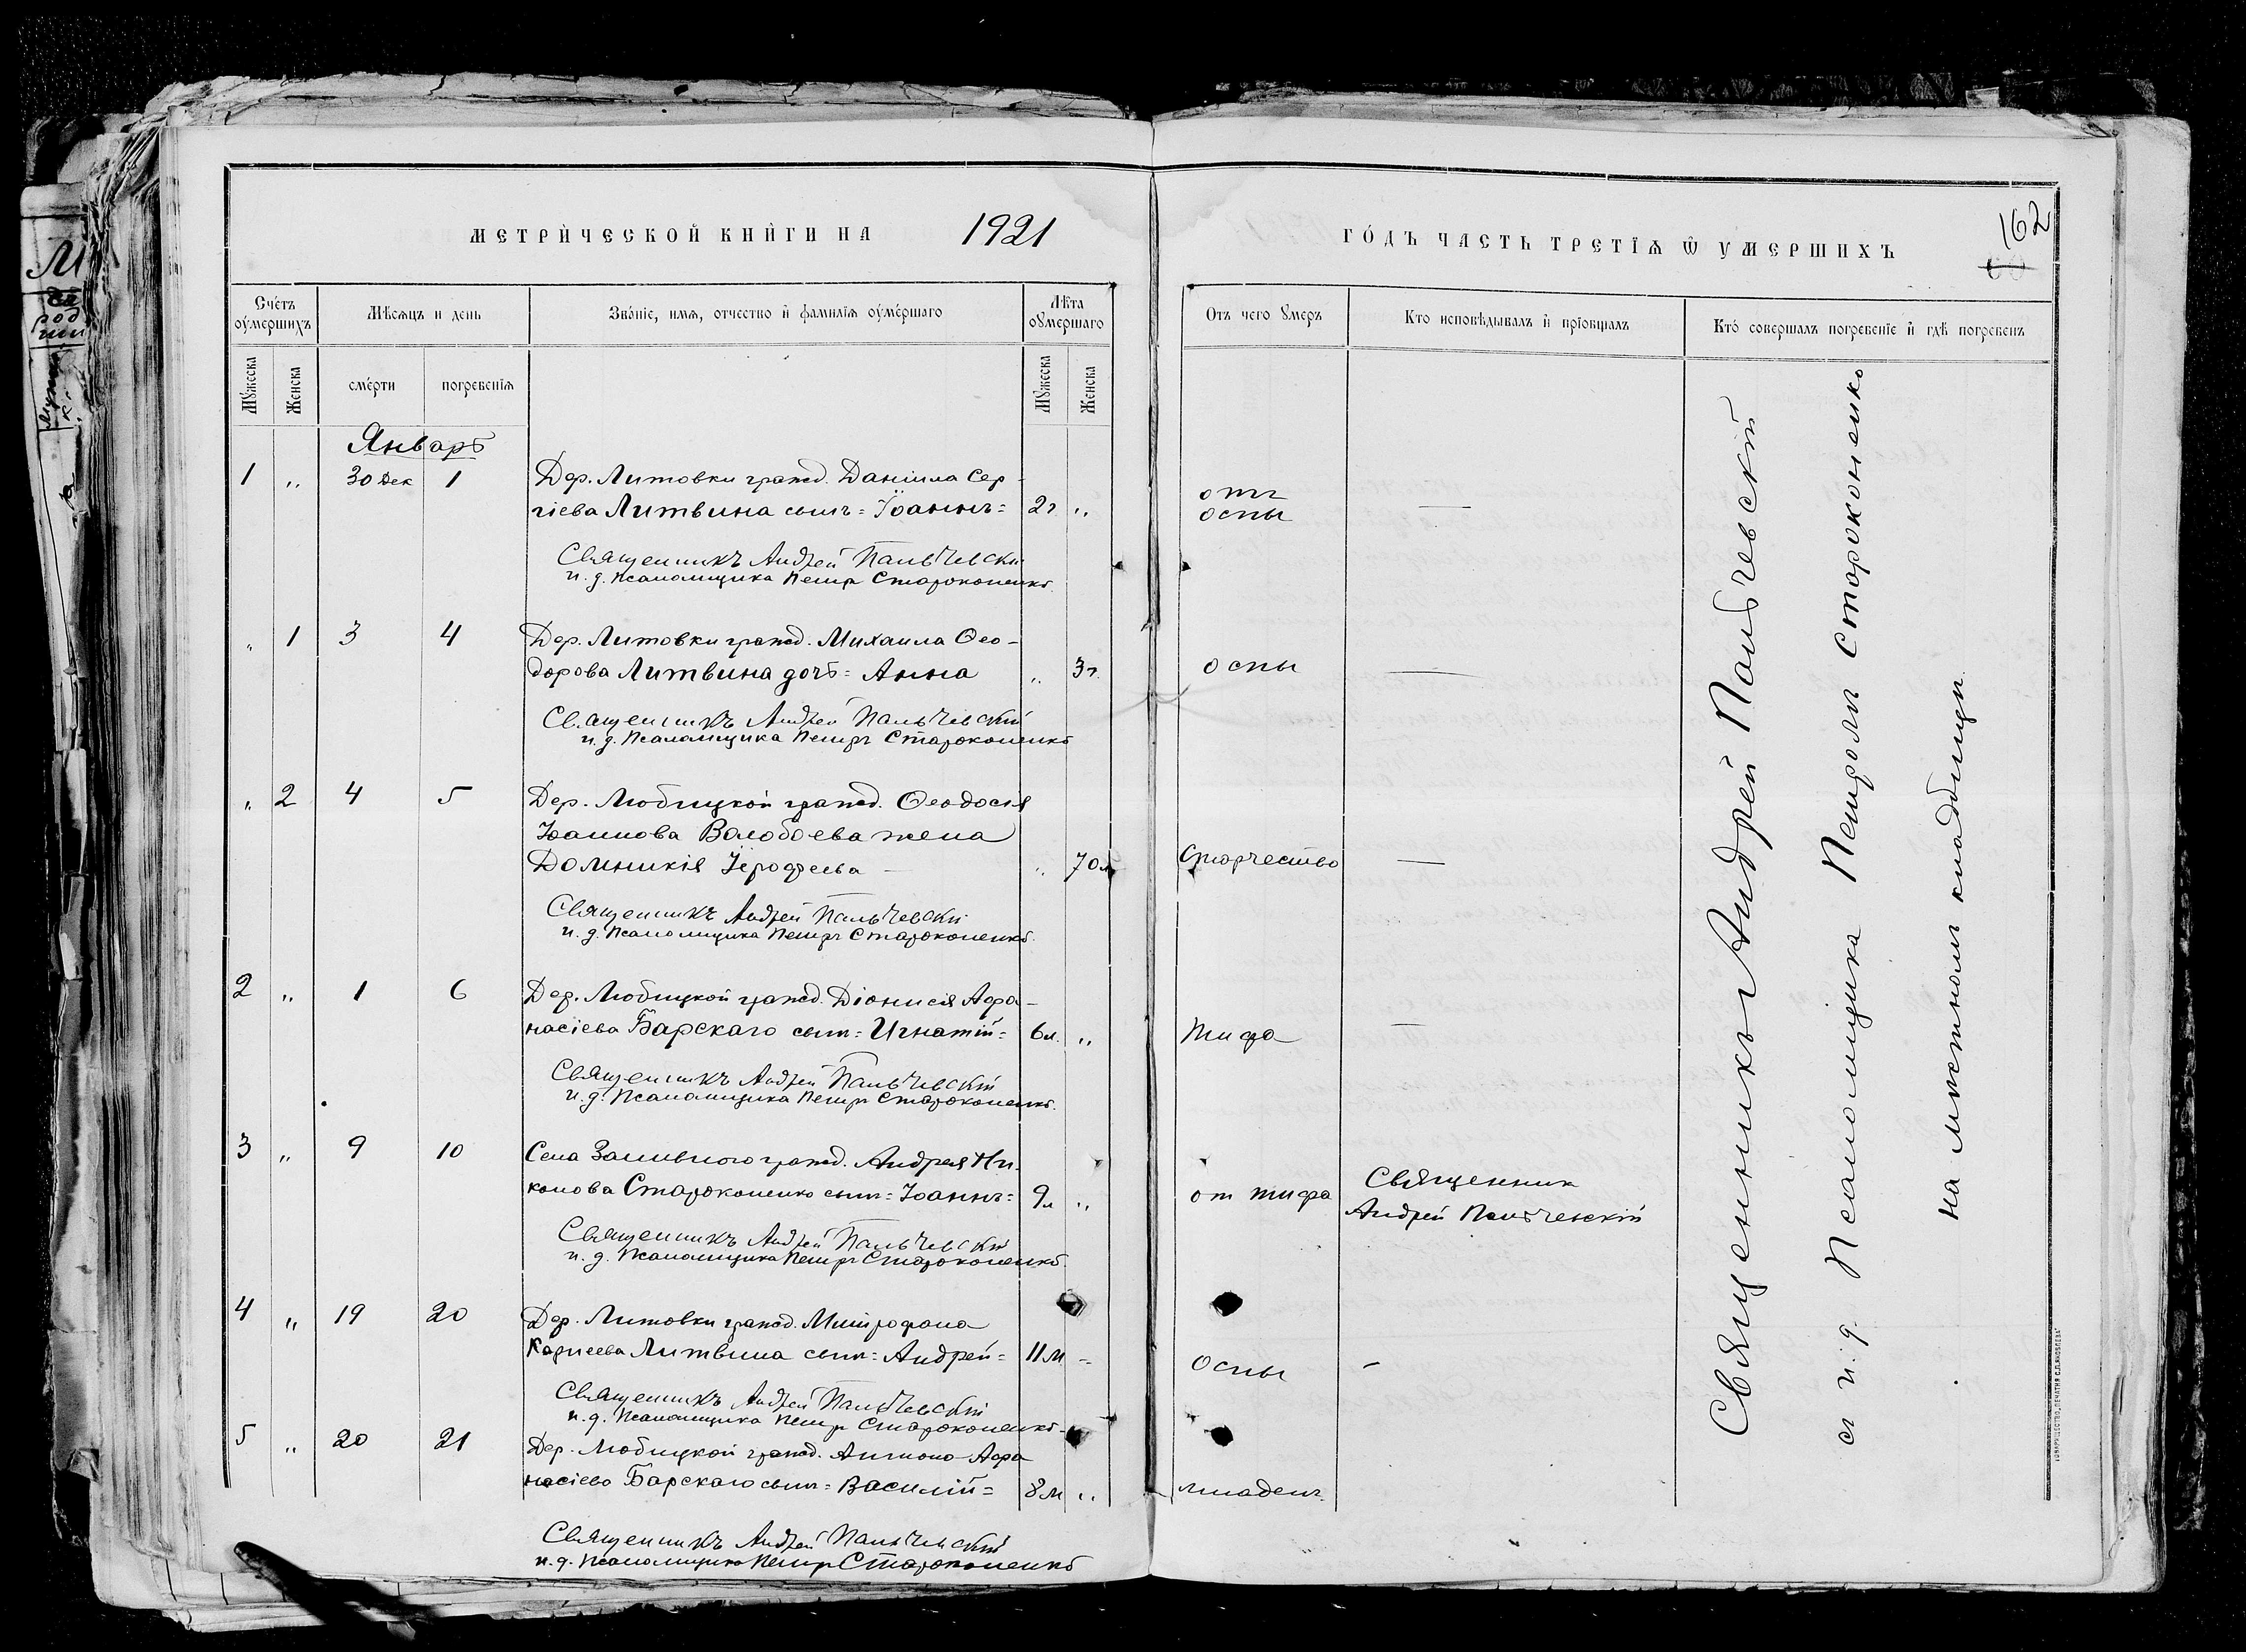 МЕТРИЧЕСКОЙ КНИГИ НА 1921
Счетъ оумершихъ
Мѣсяцъ и день
Званіе, имя, отчество и фамилія оумершаго
Лѣта оумершаго
Мужеска
Женска
смерти
погребенія
Мужеска
Женска
Январь
1 „ 30 Дек 1 Дер. Литовки гражд. Даніила Сер-
гіева Литвина сынъ = Іоаннъ = 2г „
Священникъ Андрей Пальчевскій
и. д. Псаломщика Петръ Староконенко
„ 1 3 4 Дер. Литовки гражд. Михаила Ѳео-
дорова Литвина дочь = Анна „ 3г.
Священникъ Андрей Пальчевскій
и. д. Псаломщика Петръ Староконенко
„ 2 4 5 Дер. Любицкой гражд. Ѳеодосія
Іоаннова Волобоева жена
Домникія Іерофеева — „ 70л
Священникъ Андрей Пальчевскій
и. д. Псаломщика Петръ Староконенко
2 „ 1 6 Дер. Любицкой гражд. Діонисія Аѳа-
насіева Барскаго сынъ = Игнатій = 6л. „
Священникъ Андрей Пальчевскій
и. д. Псаломщика Петръ Староконенко
3 „ 9 10 Села Заливного гражд. Андрея Ни-
конова Староконенко сынъ = Іоаннъ = 9л „
Священникъ Андрей Пальчевскій
и. д. Псаломщика Петръ Староконенко
4 „ 19 20 Дер. Литовки гражд. Митрофана
Литвина сынъ = Андрей = 11м „
Священникъ Андрей Пальчевскій
и. д. Псаломщика Петръ Староконенко
5 „ 20 21 Дер. Любицкой гражд. Антона Аѳа
насіева Барскаго сынъ = Василій = 8м „
Священникъ Андрей Пальчевскій
и. д. Псаломщика Петръ Староконенко
ГОДЪ ЧАСТЬ ТРЕТІЯ Ѿ УМЕРШИХЪ
162
Отъ чего умеръ
Кто исповѣдывалъ и пріобщалъ
Кто совершалъ погребеніе и гдѣ погребенъ
отъ
оспы —
оспы —
старчество —
тифа —
от тифа
Священник
Андрей Пальчевскій
оспы —
младенч.
Священникъ Андрей Пальчевскій
съ и. д. Псаломщика Петромъ Староконенко
на мѣстномъ кладбищѣ.